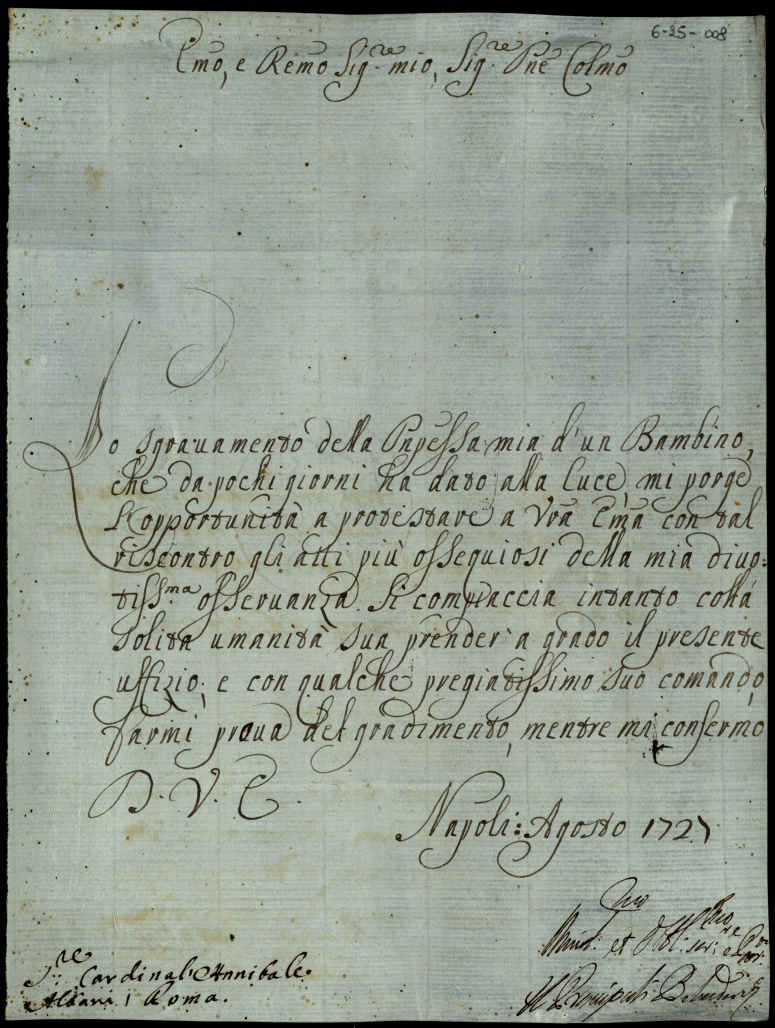 6-25-008
Emo, e Remo Sig.re mio, Sig.re Pne Colmo
Lo sgravamento della Pnpessa mia d'un Bambino,
che da pochi giorni ha dato alla luce, mi porge
l'opportunità a protestare a Vrã Emã con tal
riscontro gli atti più ossequiosi della mia divo=
tiss.ma osservanza. Si compiaccia intanto colla
solita umanità sua prender' a grado il presente
uffizio; e con qualche pregiatissimo suo comando,
farmi prova del gradimento, mentre mi confermo
D. V. E.
Napoli: Agosto 1727
et
S.re Cardinal' Annibale
Albani / Roma.
Il Principe di